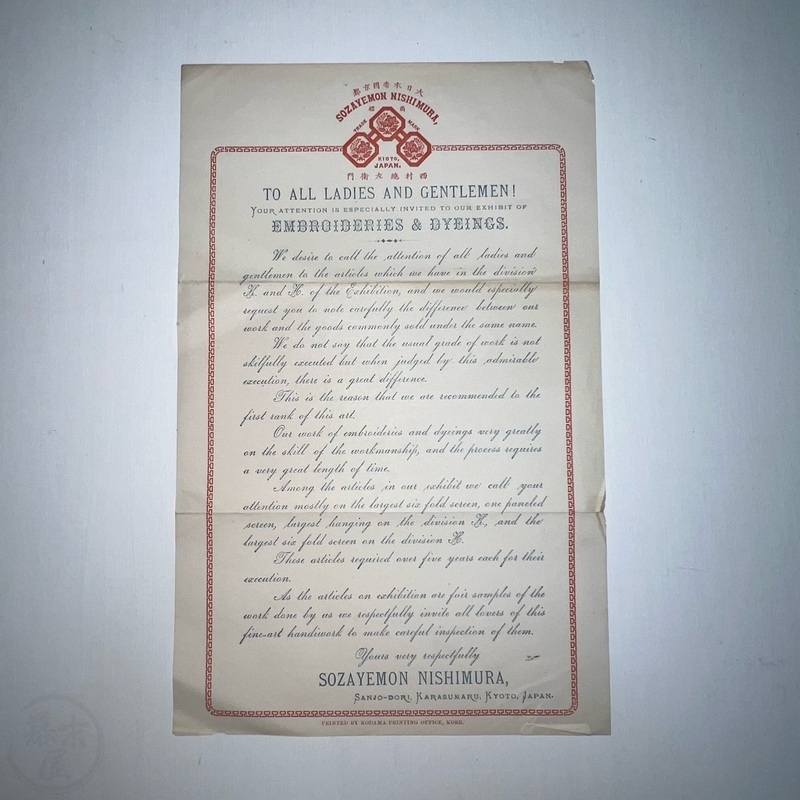 大日本帝国京都
SOZAYEMON NISHIMURA,
商標
TRADE MARK
KIOTO,
JAPAN.
西村總左衛門
TO ALL LADIES AND GENTLEMEN!
YOUR ATTENTION IS ESPECIALLY INVITED TO OUR EXHIBIT OF
EMBROIDERIES & DYEINGS.
We desire to call the attention of all ladies and
gentlemen to the articles which we have in the division
K. and H. of the Exhibition, and we would especially
request you to note carefully the difference between our
work and the goods commonly sold under the same name.
We do not say that the usual grade of work is not
skilfully executed but when judged by this admirable
execution, there is a great difference.
This is the reason that we are recommended to the
first rank of this art.
Our work of embroideries and dyeings very greatly
on the skill of the workmanship, and the process requires
a very great length of time.
Among the articles in our exhibit we call your
attention mostly on the largest six fold screen, one paneled
screen, largest hanging on the division K., and the
largest six fold screen on the division H.
These articles required over five years each for their
execution.
As the articles on exhibition are fair samples of the
work done by us we respectfully invite all lovers of this
fine-art handiwork to make careful inspection of them.
Yours very respectfully
SOZAYEMON NISHIMURA,
SANJO-DORI, KARASUMARU, KYOTO, JAPAN.
PRINTED BY KODAMA PRINTING OFFICE, KOBE.